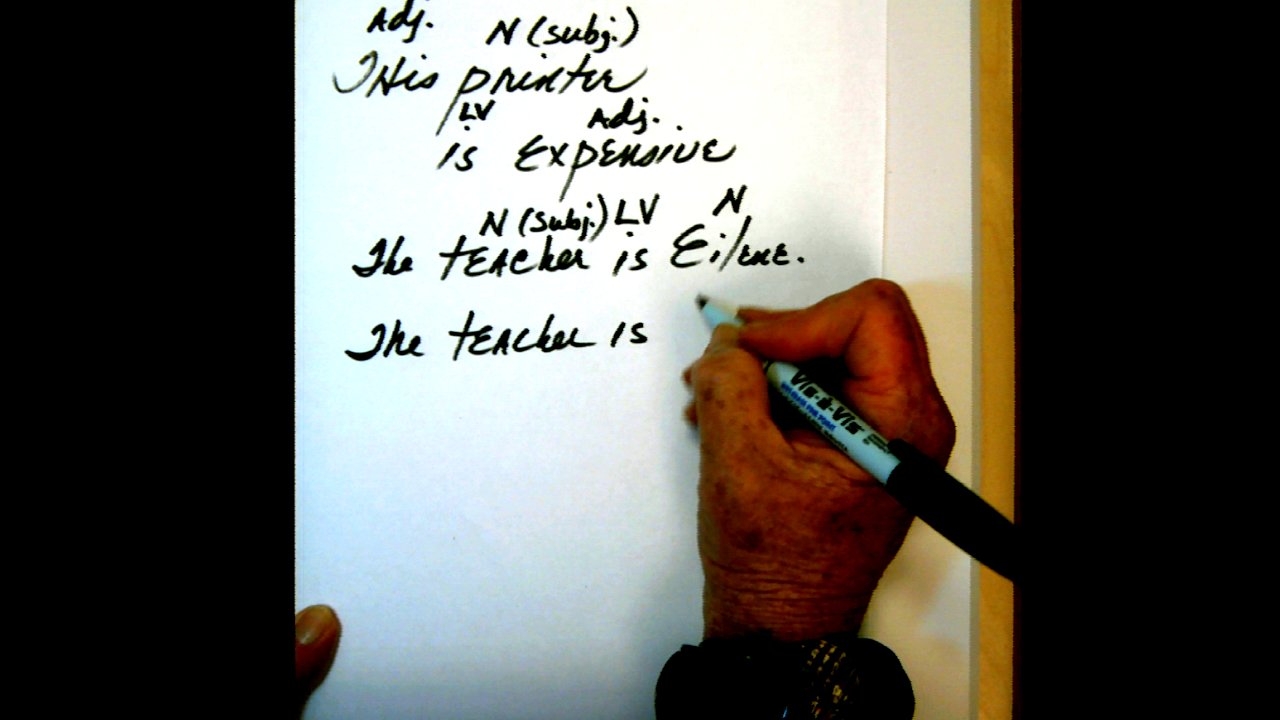 Adj. N (subj.)
This printer
LV Adj.
is Expensive
N (subj.) LV N
The teacher is Eilene.
The teacher is
VIS-à-VIS